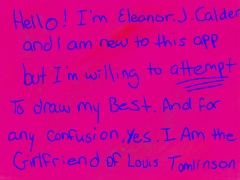 Hello! I'm Eleanor.J.Calder
and I am new to this app
but I'm willing to attempt
To draw my Best. And for
any confusion, Yes. I Am the
Girlfriend Of Louis Tomlinson